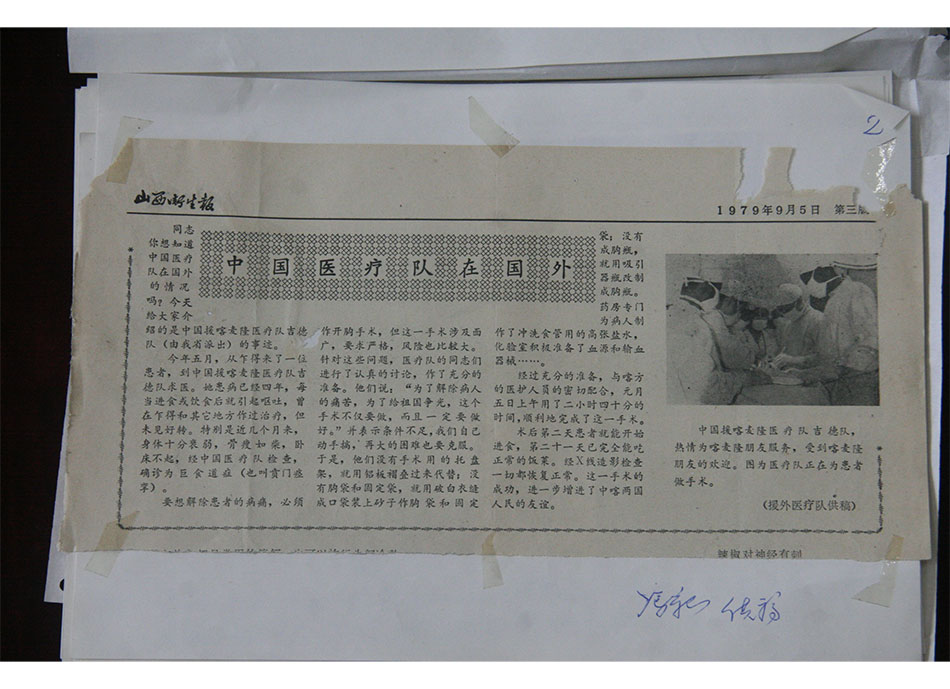 2
山西卫生报
1979年9月5日 第三版
中国医疗队在国外
同志
你想知道
中国医疗
队在国外
的情况
吗？今天
给大家介
绍的是中国援喀麦隆医疗队吉德
队（由我省派出）的事迹。
今年五月，从乍得来了一位
患者，到中国援喀麦隆医疗队吉
德队求医。她患病已经四年，每
当进食或饮食后就引起呕吐，曾
在乍得和其它地方作过治疗，但
未见好转。特别是近几个月来，
身体十分衰弱，骨瘦如柴，卧
床不起，经中国医疗队检查，
确诊为巨食道症（也叫贲门痉
挛）。
要想解除患者的病痛，必须
作开胸手术，但这一手术涉及面
广，要求严格，风险也比较大。
针对这些问题，医疗队的同志们
进行了认真的讨论，作了充分的
准备。他们说：“为了解除病人
的痛苦，为了给祖国争光，这个
手术不仅要做，而且一定要做
好。”并表示条件不足，我们自己
动手搞，再大的困难也要克服。
于是，他们没有手术用的托盘
架，就用铝板褶叠过来代替；没
有胸袋和固定袋，就用破白衣缝
成口袋装上砂子作胸袋和固定
袋；没有
成胸瓶，
就用吸引
器瓶改制
成胸瓶。
药房专门
为病人制
作了冲洗食管用的高张盐水，
化验室积极准备了血源和输血
器械……。
经过充分的准备，与喀方
的医护人员的密切配合，元月
五日上午用了二小时四十分的
时间，顺利地完成了这一手术。
术后第二天患者就能开始
进食，第二十一天已完全能吃
正常的饭菜。经X线造影检查
一切都恢复正常。这一手术的
成功，进一步增进了中喀两国
人民的友谊。
中国援喀麦隆医疗队吉德队，
热情为喀麦隆朋友服务，受到喀麦隆
朋友的欢迎。图为医疗队正在为患者
做手术。
（援外医疗队供稿）
辣椒对神经有刺
供稿